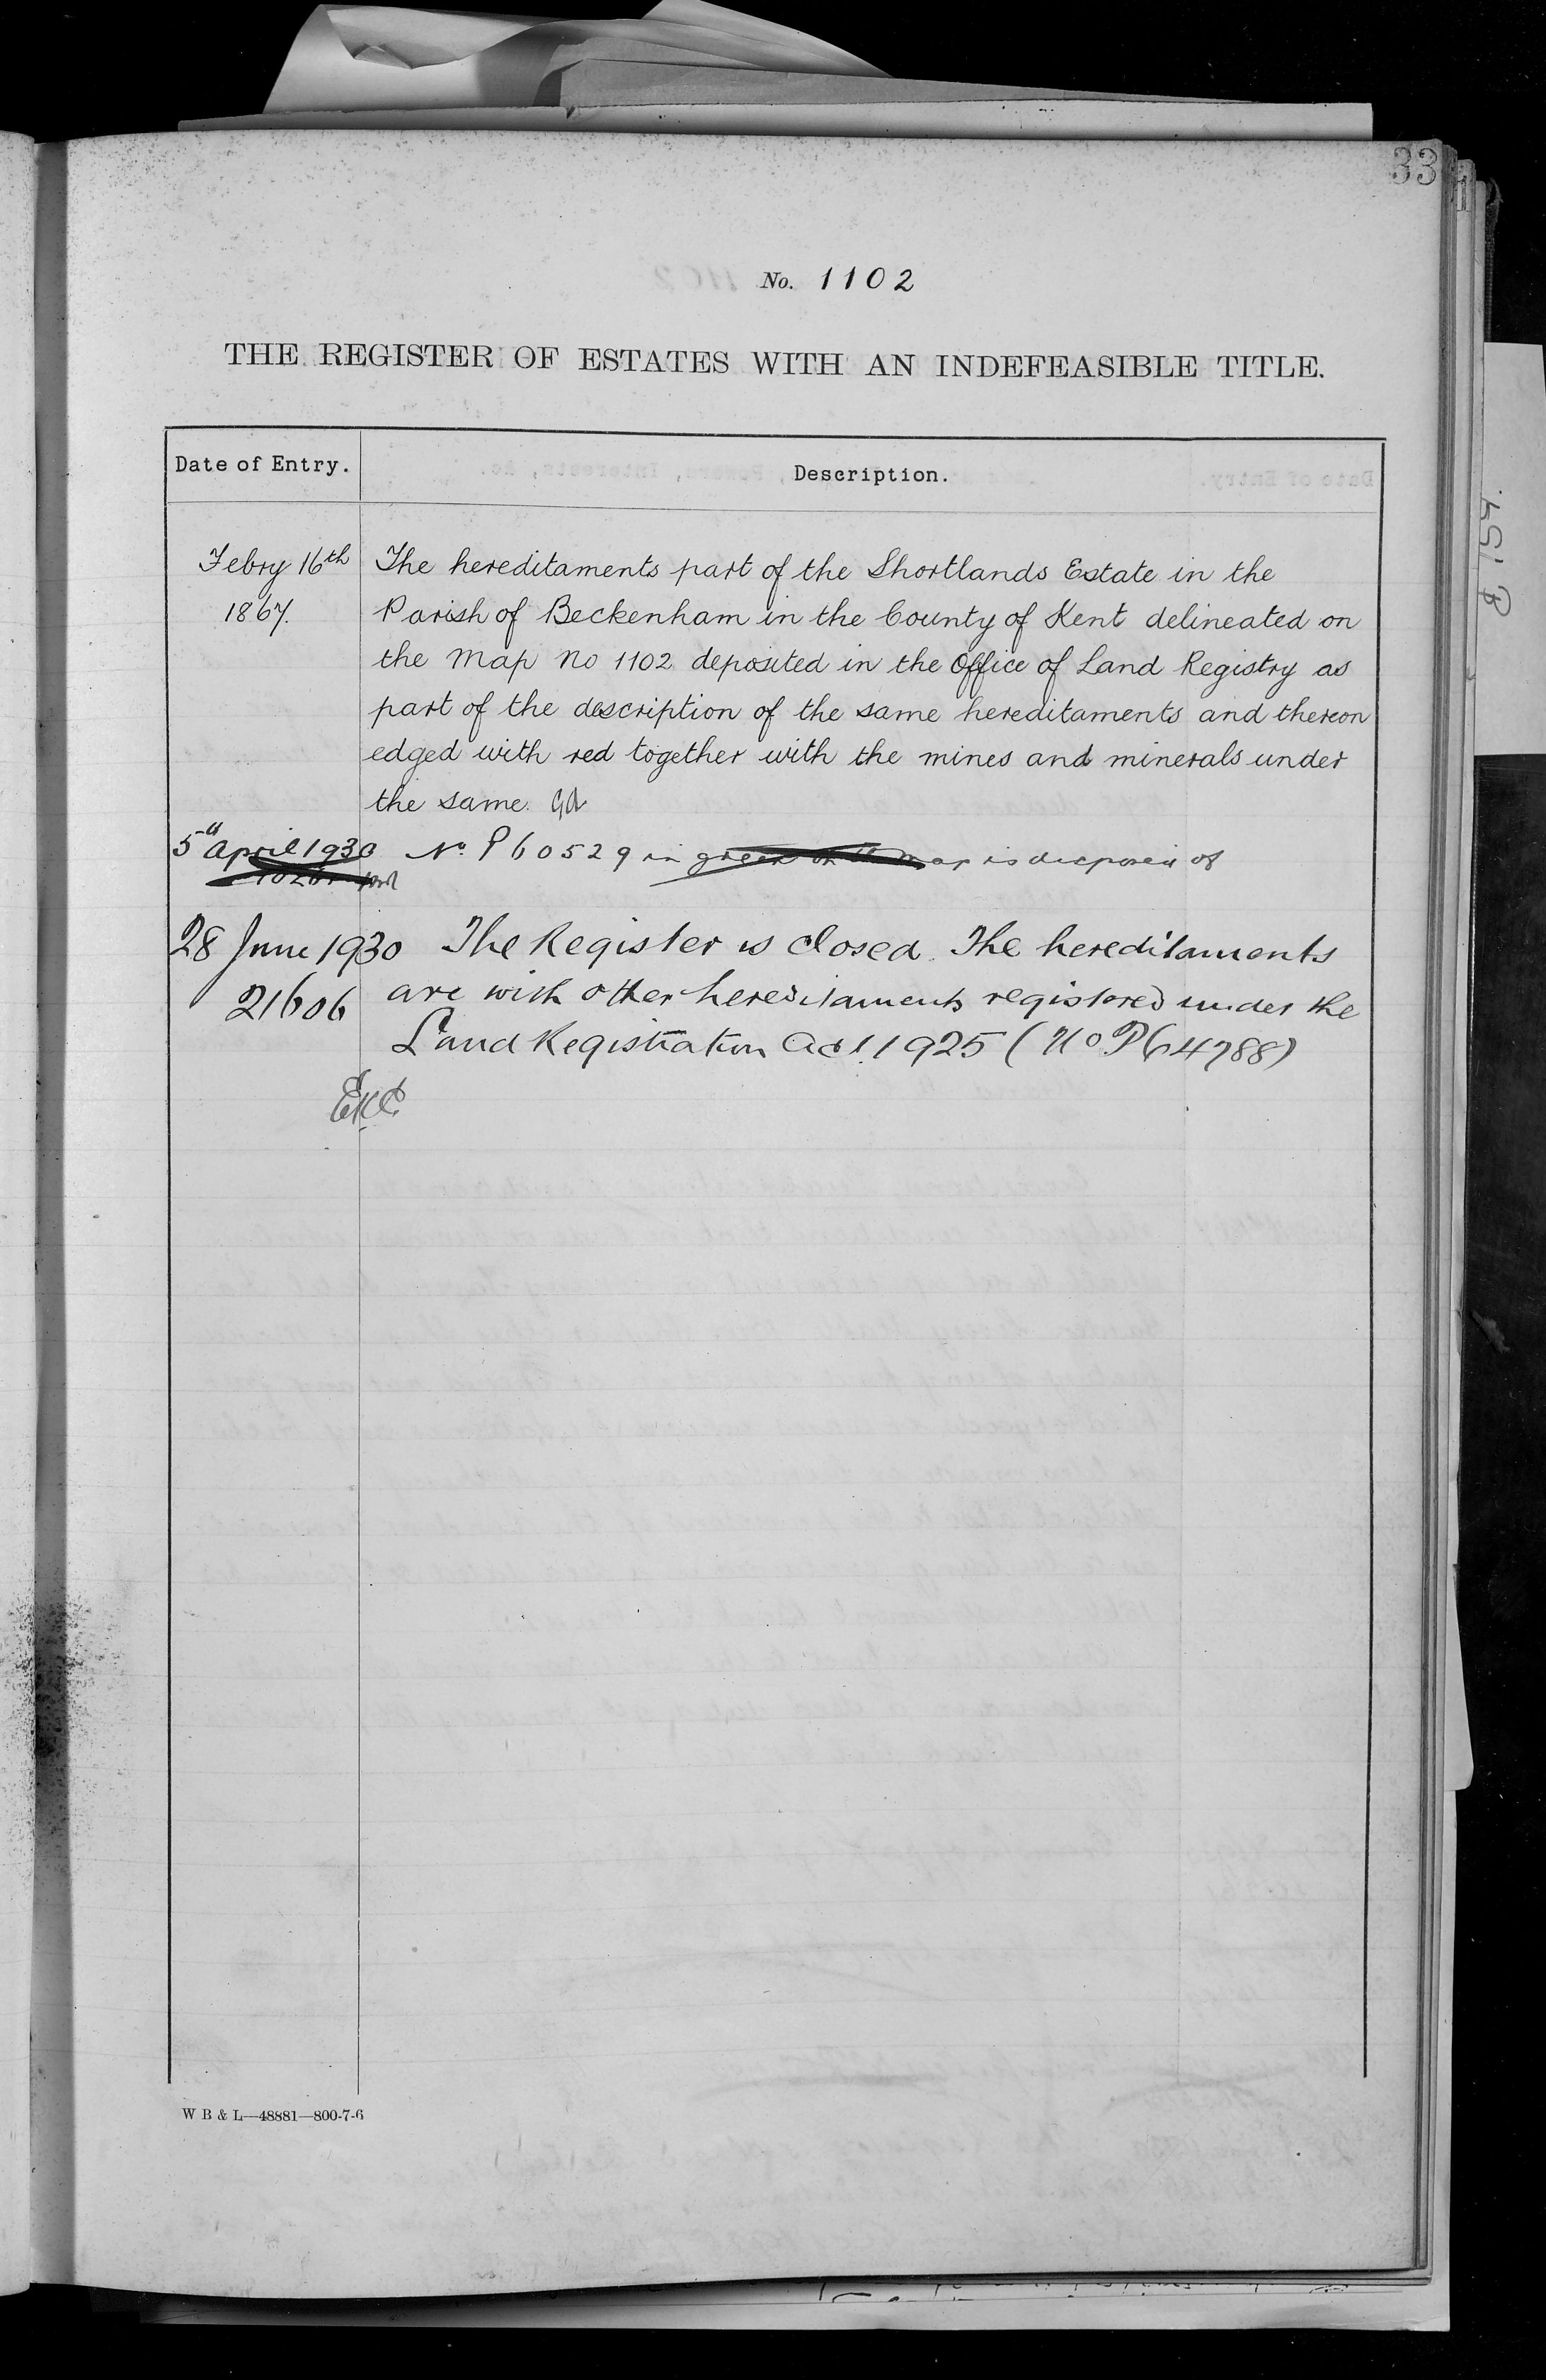 33
No. 1102
THE REGISTER OF ESTATES WITH AN INDEFEASIBLE TITLE.
Date of Entry.
Description.
Febry 16th
1867.
The hereditaments part of the Shortlands Estate in the
Parish of Beckenham in the County of Kent delineated on
the Map No 1102 deposited in the Office of Land Registry as
part of the description of the same hereditaments and thereon
edged with red together with the mines and minerals under
the same.
5th April 1930 No. P60529 in green on the map is disposed of
28 June 1930 The Register is closed. The hereditaments
21606 are with other hereditaments registered under the
Land Registration Act 1925 (No P64788)
EKC
W B & L—48881—800-7-6